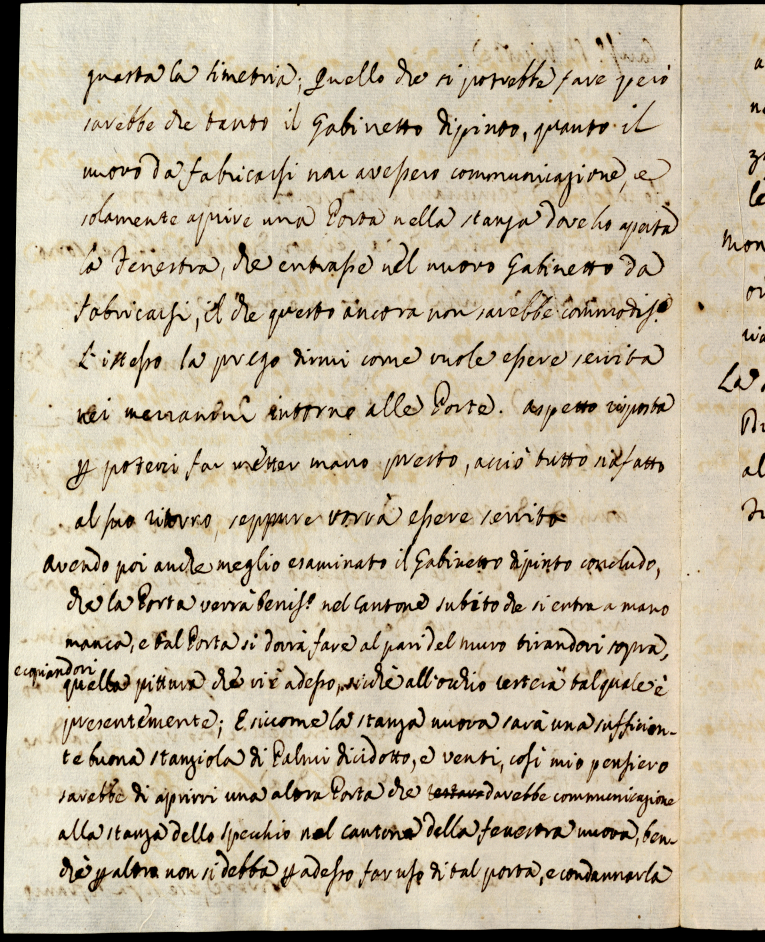 guasta la simetria; Quello che si potrebbe fare però
sarebbe che tanto il Gabinetto dipinto, quanto il
nuovo da fabricarsi non avessero communicazione, e
solamente aprire una Porta nella stanza dove ho aperta
la Fenestra, che entrasse nel nuovo Gabinetto da
fabricarsi, il che questo ancora non sarebbe commodiss.º
L'istesso la prego dirmi come vuole essere servita
nei intorno alle Porte. aspetto risposta
p poterci far metter mano presto, acciò tutto sia fatto
al suo ritorno, seppure vorrà essere servita
avendo poi anche meglio esaminato il Gabinetto dipinto concludo,
che la Porta verrà beniss.º nel Cantone subito che si entra a mano
manca, e tal Porta si dovrà fare al pari del muro tirandovi sopra,
e copiandovi
quella pittura che vi è adesso, sicchè all'occhio resterà tal quale è
presentemente; E siccome la stanza nuova sarà una sufficien-
te buona stanziola di Palmi dicidotto, e venti, così mio pensiero
sarebbe di aprirvi una altra Porta che darebbe communicazione
alla stanza dello specchio nel cantone della fenestra nuova, ben-
chè p altro non si debba p adesso far uso di tal porta, e condannarla
a
n
le
mon
La
al